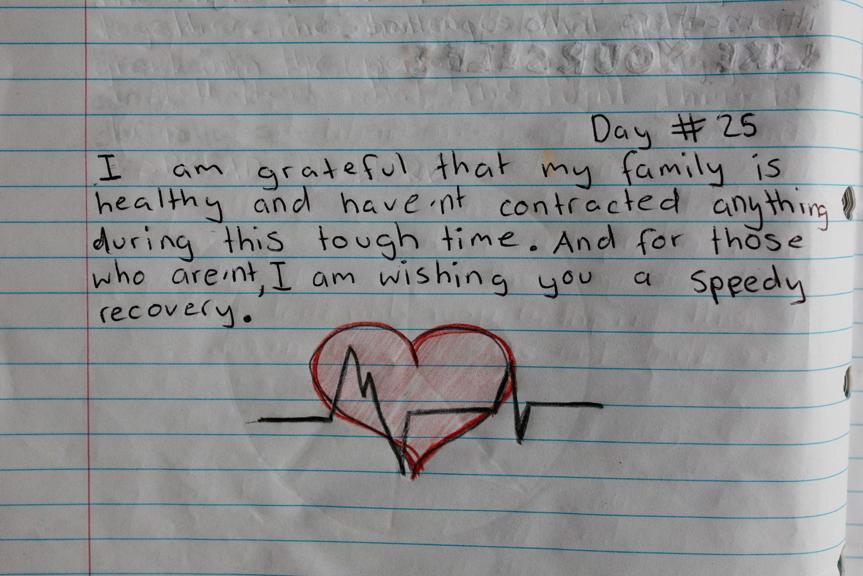 Day # 25
I am grateful that my family is
healthy and have'nt contracted anything
during this tough time. And for those
who are'nt, I am wishing you a speedy
recovery.